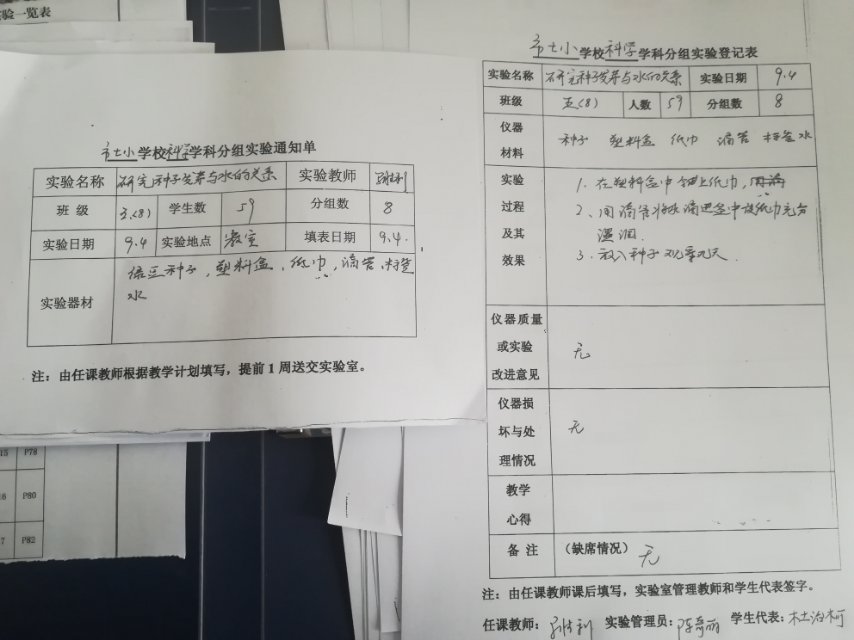 验一览表
市七小学校科学学科分组实验通知单
实验名称 研究种子发芽与水的关系 实验教师
班 级 五(8) 学生数 59 分组数 8
实验日期 9.4 实验地点 教室 填表日期 9.4.
实验器材 绿豆种子，塑料盒、纸巾，滴管，
水
注：由任课教师根据教学计划填写，提前1周送交实验室。
15 P78
16 P80
17 P82
市七小学校科学学科分组实验登记表
实验名称 研究种子发芽与水的关系 实验日期 9.4
班级 五(8) 人数 59 分组数 8
仪器材料 种子 塑料盒 纸巾 滴管 水
实验过程及其效果
1. 在塑料盒中铺上纸巾，
2、用滴管将水滴进盒中使纸巾充分
湿润.
3. 放入种子观察几天.
仪器质量或实验改进意见 无
仪器损坏与处理情况 无
教学心得
备 注 （缺席情况） 无
注：由任课教师课后填写，实验室管理教师和学生代表签字。
任课教师： 实验管理员： 学生代表：杜治柯